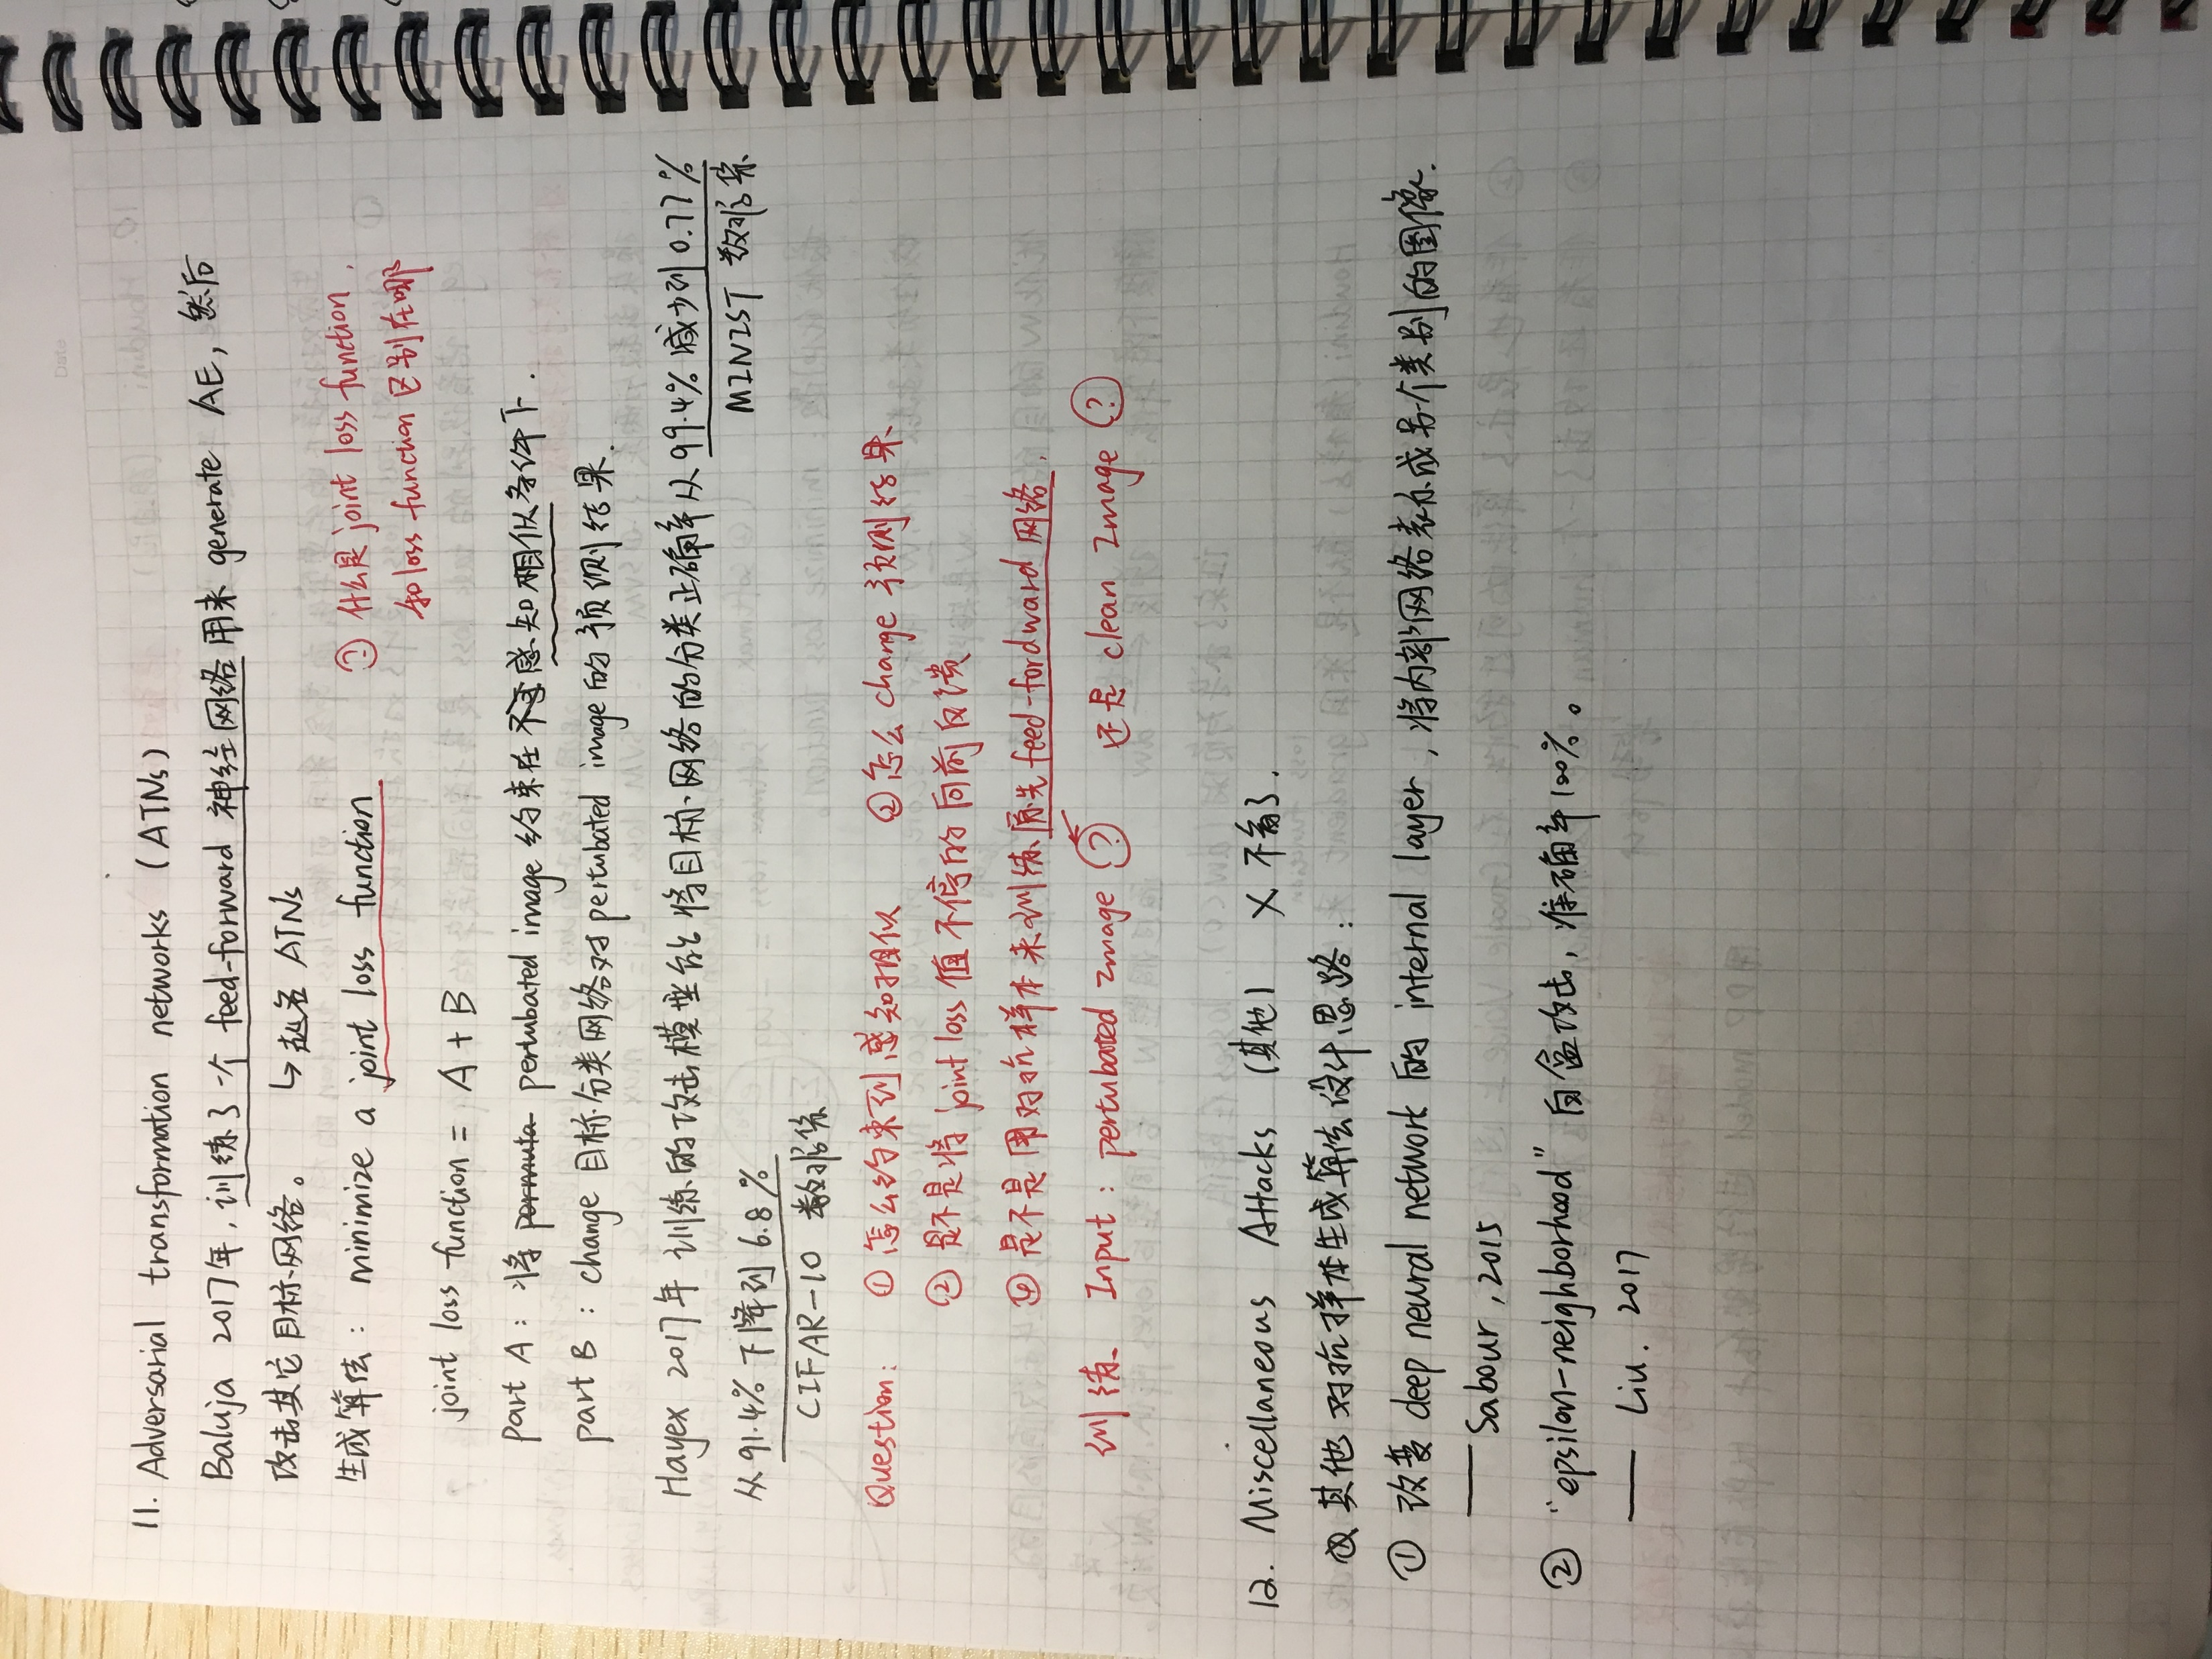 Date
11. Adversarial transformation networks (ATNs)
Baluja 2017年, 训练了一个 feed-forward 神经网络用来 generate AE, 然后
攻击其它目标网络。 ↳ 起名 ATNs
生成算法: minimize a joint loss function
① 什么是 joint loss function,
和 loss function 区别在哪
joint loss function = A + B
part A: 将 perturbated image 约束在感知相似条件下.
part B: change 目标分类网络对 perturbated image 的预测结果.
Hayex 2017年 训练的攻击模型能将目标网络的分类正确率从 99.4% 减少到 0.77%
MINIST 数据集
从 91.4% 下降到 6.8%
CIFAR-10 数据集
Question: ① 怎么约束到感知相似 ② 怎么 change 预测结果
② 是不是将 joint loss 值不停的向前反馈
④ 是不是用对抗样本来训练原先 feed-fordward 网络.
训练 Input: perturbated Image ? 还是 clean Image ?
12. Miscellaneous Attacks (其他) X 不看了.
其他对抗样本生成算法设计思路:
① 改变 deep neural network 的 internal layer, 将内部网络表示成另一个类别的图像.
—— Sabour, 2015
② "epsilon-neighborhood" 白盒攻击, 准确率100%。
—— Liu. 2017